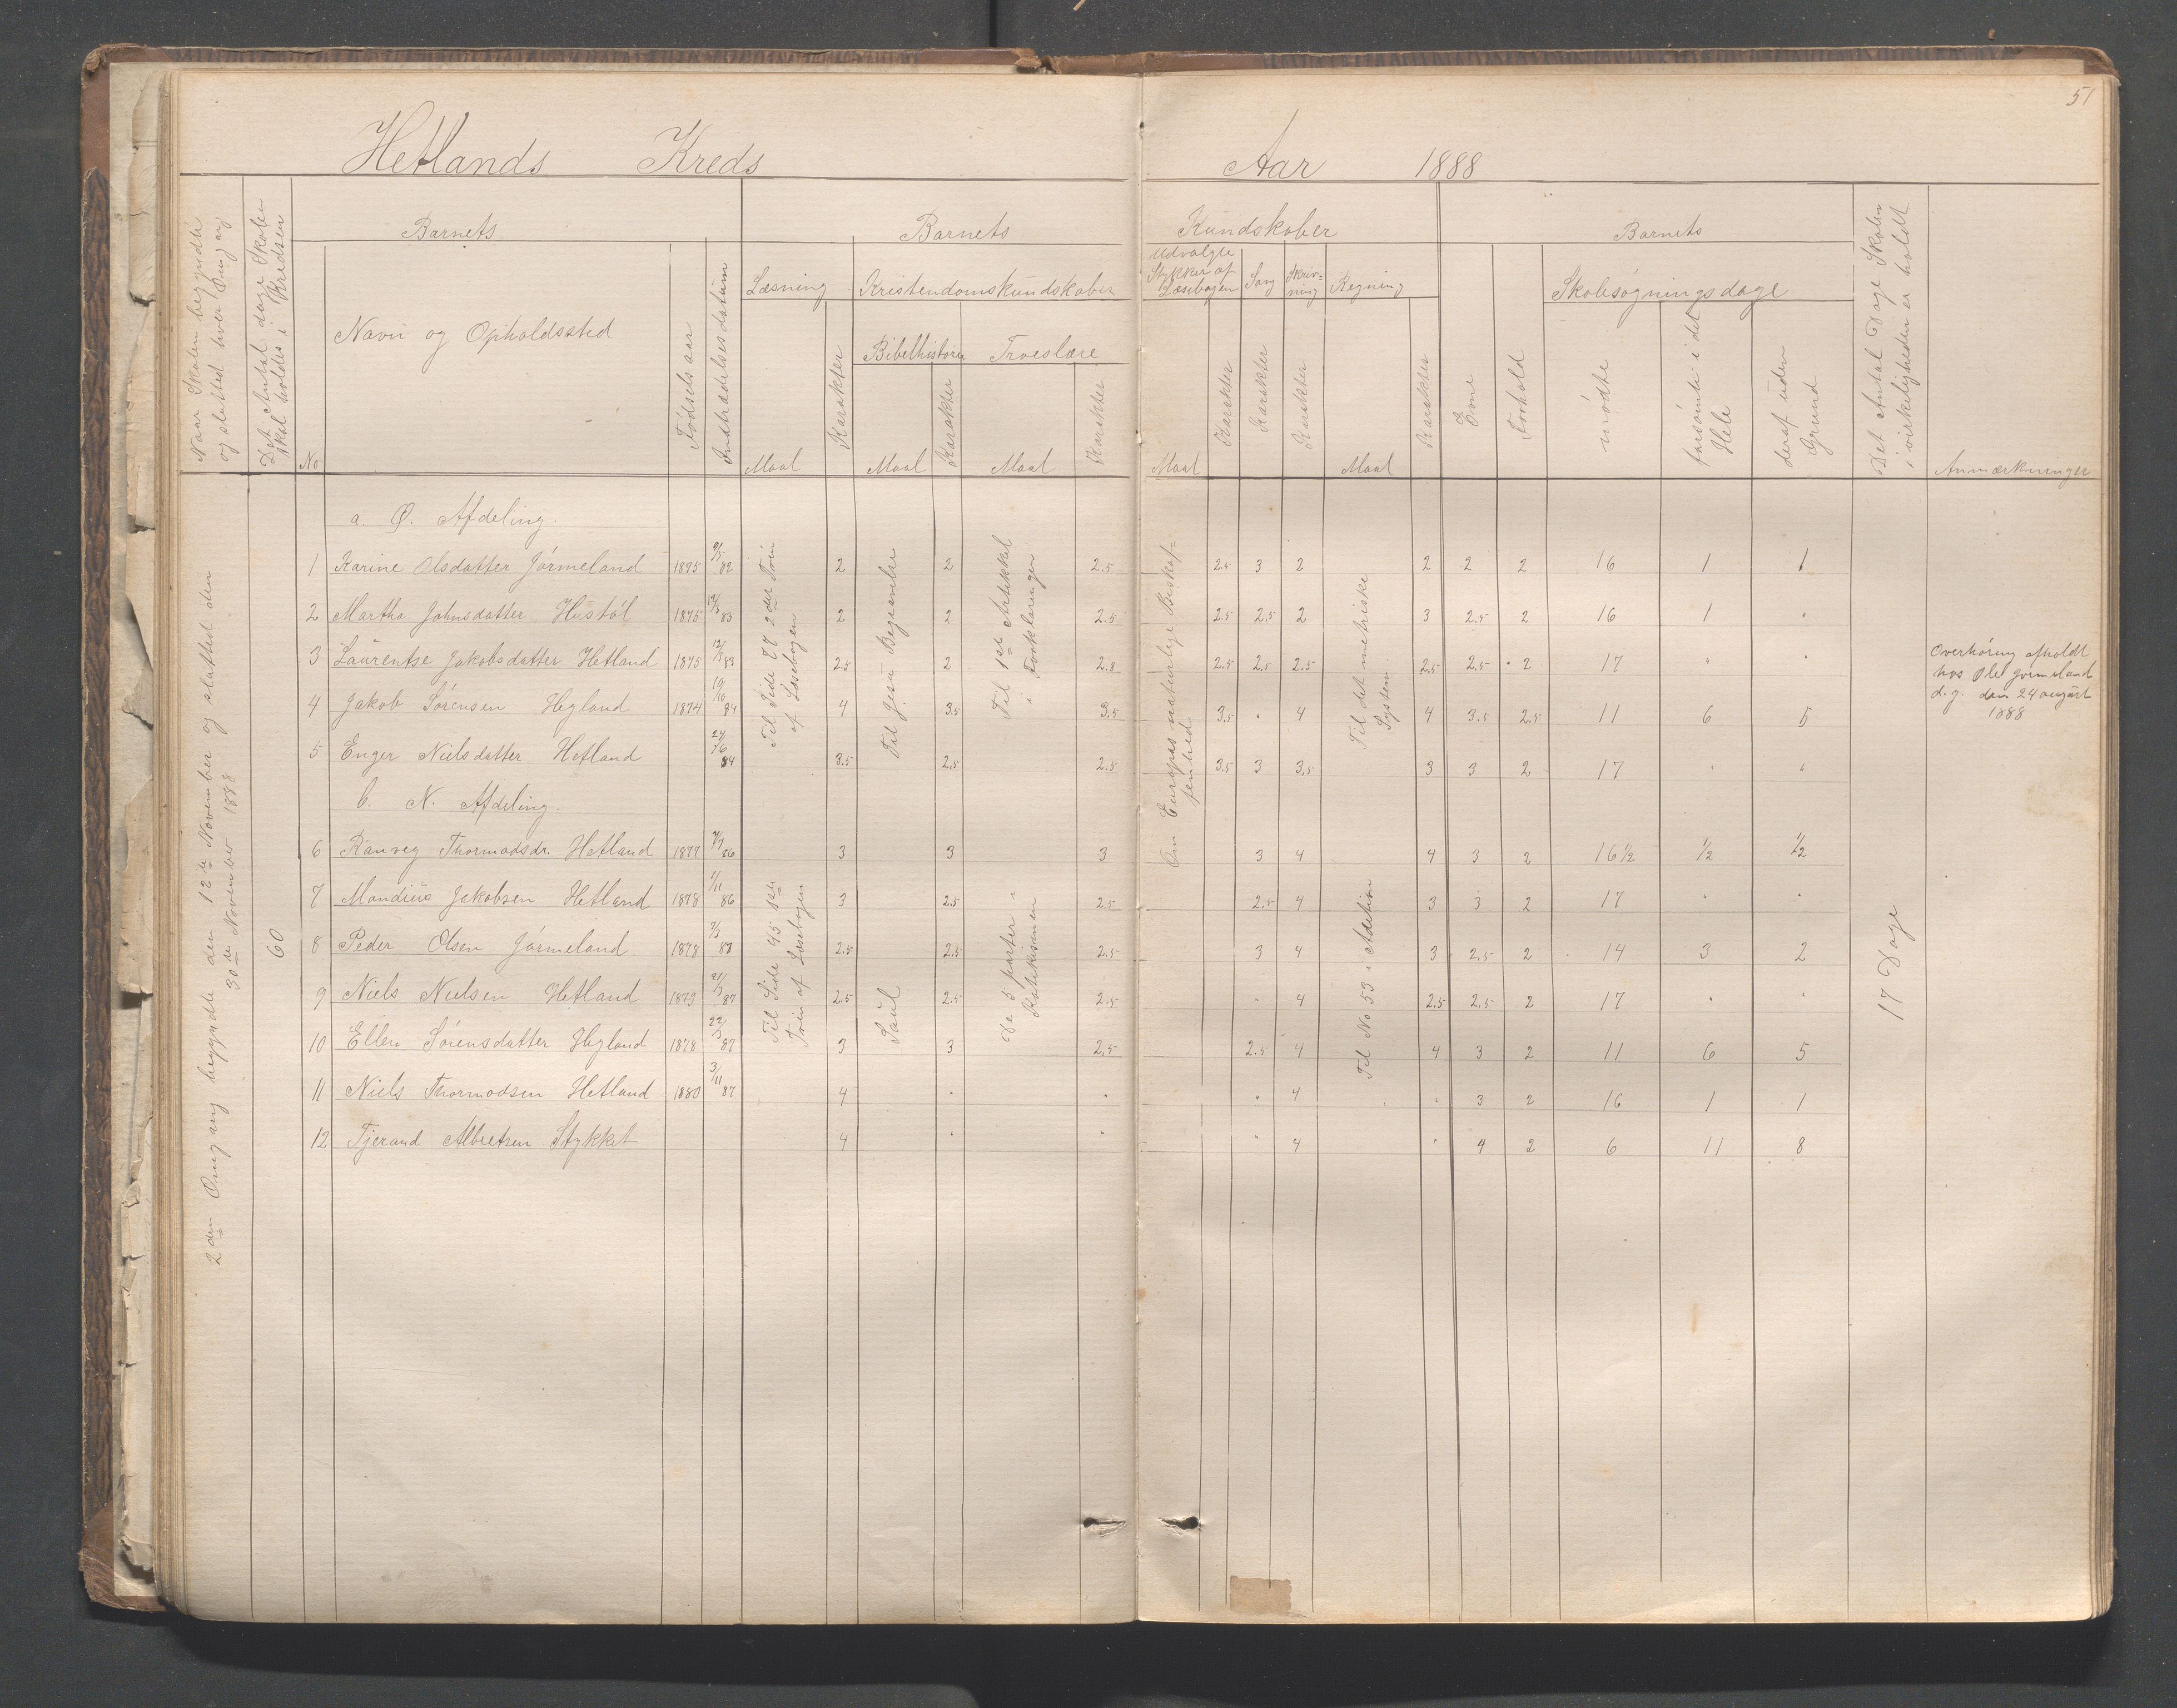 51
Hetlands Kreds Aar 1888
Naar Skolen begyndte og slutted hver Omgang
Det Antal dage Skolen skal holdes i Kredsen
Barnets
No
Navn og Opholdssted
Fødselsaar
Indtrædelsesdatum
Barnets Kundskaber
Læsning
Maal
Karakter
Kristendomskundskaber
Bibelhistorie
Maal
Karakter
Troeslære
Maal
Karakter
Udvalgte Stykker af Læsebogen
Maal
Karakter
Sang
Karakter
Skrivning
Karakter
Regning
Maal
Karakter
Barnets
Evne
Forhold
Skolesøgningsdage
mødte
forsømte i det Hele
deraf uden Grund
Det Antal Dage Skolen i virkeligheden er holdt
Anmærkninger
2den Omgang begyndte den 12te November og slutted den
30te November 1888
60
a. Ø. Afdeling.
1 Karine Olsdatter Jørmeland 1875 82 2 2 2.5 2.5 3 2 2 2 2 16 1 1
2 Martha Johnsdatter Hustøl 1875 83 2 2 2.5 2.5 2.5 2 3 2.5 2 16 1 "
3 Laurentse Jakobsdatter Hetland 1875 12/3 83 2.5 2 2.8 2.5 2.5 2.5 2.5 2.5 2 17 " "
4 Jakob Sørensen Hegland 1874 10/10 84 4 3.5 3.5 3.5 " 4 4 3.5 2.5 11 6 5
5 Enger Nielsdatter Hetland 24/6 84 3.5 2.5 2.5 3.5 3 3.5 3 3 2 17 " "
b. N. Afdeling.
6 Ranveg Thormodsdr. Hetland 1877 86 3 3 3 3 4 4 3 2 16 1/2 1/2 1/2
7 Mandius Jakobsen Hetland 1878 1/11 86 3 2.5 2.5 2.5 4 3 3 2 17 " "
8 Peder Olsen Jørmeland 1878 83 2.5 2.5 2.5 3 4 3 2.5 2 14 3 2
9 Niels Nielsen Hetland 1879 21/3 87 2.5 2.5 2.5 " 4 2.5 2.5 2 17 " "
10 Ellen Sørensdatter Hegland 1878 22/3 87 3 3 2.5 2.5 4 4 3 2 11 6 5
11 Niels Thormodsen Hetland 1880 3/11 87 4 " " " 4 " 3 2 16 1 1
12 Tjerand Albretsen Stykket 4 " " " 4 " 4 2 6 11 8
Til Side 77 2den Trin
af Læsebogen
Til Jesu Begravelse
Til 1ste Artikkel
i Forklaringen
Om Europas naturlige Beskaf-
fenhed
Til det metriske
System
Til Side 45 1ste
Trin af Læsebogen
Saul
De 5 parter i
Katekismen
Til No 53 i Addition
17 Dage
Overhøring afholdt
hos Ole Jørmeland
d.y. den 24 august
1888